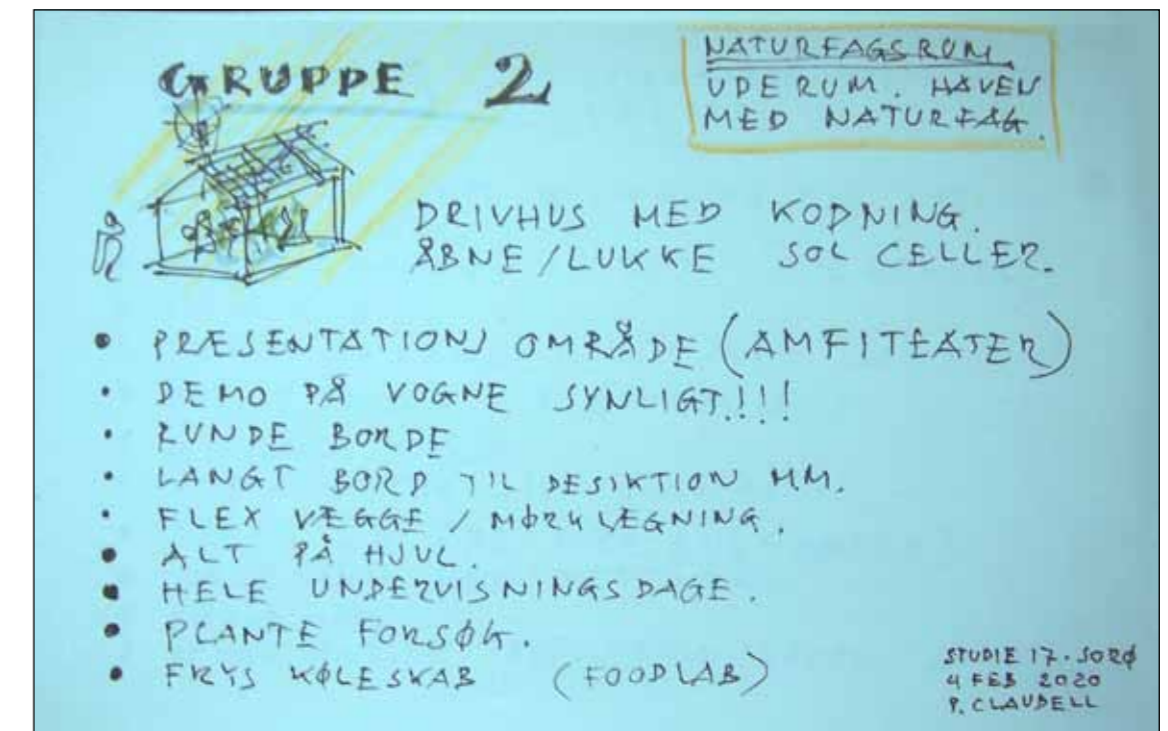 GRUPPE 2
NATURFAGSRUM.
UDERUM. HAVEN
MED NATURFAG.
DRIVHUS MED KODNING.
ÅBNE/LUKKE SOL CELLER.
• PRÆSENTATIONS OMRÅDE (AMFITEATER)
• DEMO PÅ VOGNE SYNLIGT!!!
• RUNDE BORDE
• LANGT BORD TIL DESIKTION MM.
• FLEX VÆGGE / MØRKLÆGNING.
• ALT PÅ HJUL.
• HELE UNDERVISNINGSDAGE.
• PLANTE FORSØG.
• FRYS KØLESKAB (FOODLAB)
STUDIE 17. SORØ
4 FEB 2020
P. CLAUDELL